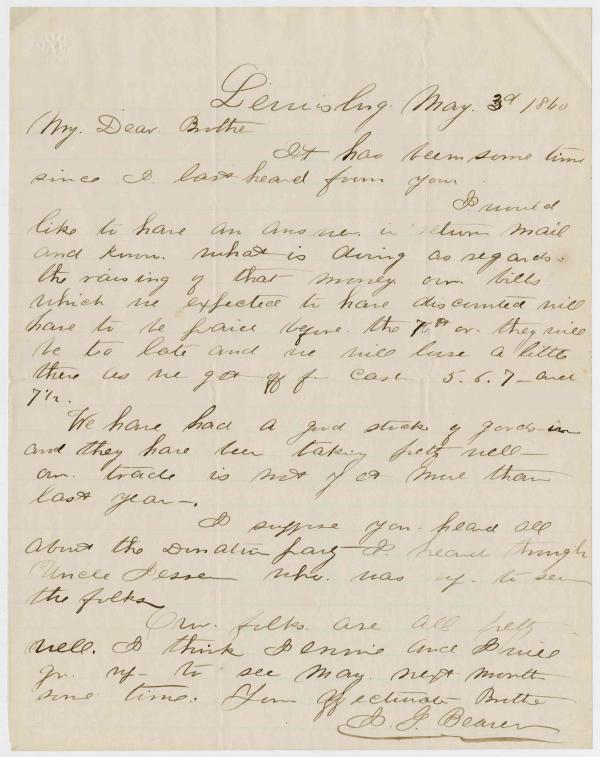 Lewisburg. May. 3d 1860
My. Dear. Brothe
It has been some time
since I last heard from you.
I would
like to have an answer in return mail
and know. what is doing as regards.
the raising of that money. our. bills
which we expected to have discounted will
have to be paid before. the 7th or. they will
be too late and we will lose a little
there as we get off for cash 5. 6. 7 - and
7 1/2.
We have had a good stock of goods in
and they have been taking pretty well -
our. trade is not yet more than
last year -.
I suppose you. heard all
about the Donation party I heard through
Uncle Jesse who. was up. to see
the folks
Our. folks are all pretty
well. I think Jennie and I will
go. up - to see May. next month
some time. Your affectionate Brothe
J. G. Beaver